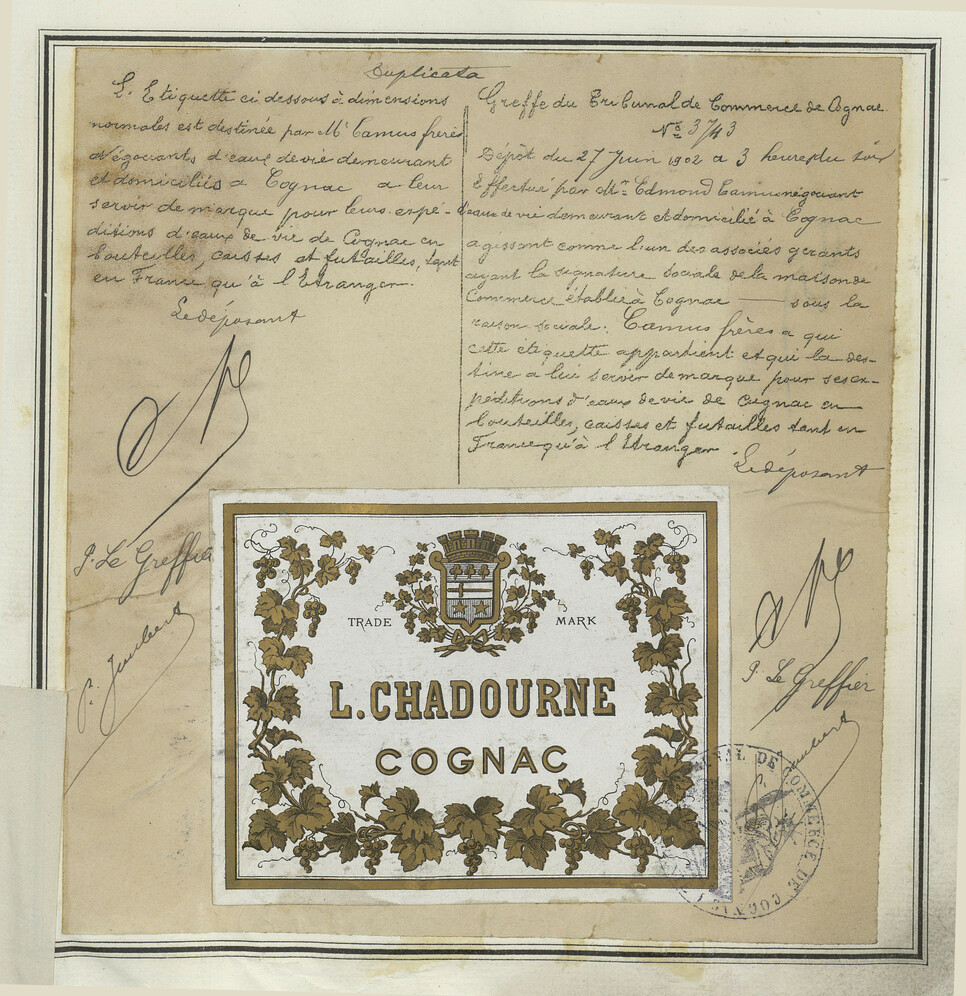 Duplicata
L'Etiquette ci dessous à dimensions
normales est destinée par Mr Camus frères
négociants d'eaux de vie demeurant
et domiciliés a Cognac a leur
servir de marque pour leurs expé-
ditions d'eaux de vie de Cognac en
bouteilles, caisses et futailles, tant
en France qu'à l'Etranger.
Le déposant
P. Le Greffier
Greffe du Tribunal de Commerce de Cognac
No 3743
Dépôt du 27 Juin 1902 a 3 heures du soir
Effectué par Mr Edmond Camus négociant
d'eaux de vie demeurant et domicilié à Cognac
agissant comme l'un des associés gerants
ayant la signature sociale de la maison de
Commerce établie à Cognac — sous la
raison sociale: Camus frères a qui
cette étiquette appartient et qui la des-
tine a lui servir de marque pour ses ex-
péditions d'eaux de vie de Cognac en
bouteilles, caisses et futailles tant en
France qu'à l'Etranger
Le déposant
P. Le Greffier
TRADE MARK
L. CHADOURNE
COGNAC
TRIBUNAL DE COMMERCE DE COGNAC